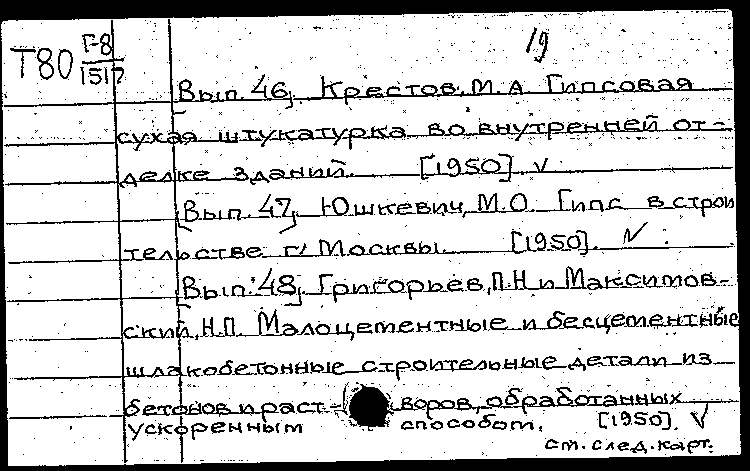 19
Т80 Г-8
1517
[Вып. 46]. Крестов, М.А Гипсовая
сухая штукатурка во внутренней от-
делке зданий. [1950]. V
[Вып. 47]. Юшкевич, М.О. Гипс в строи
тельстве г. Москвы. [1950]. V
[Вып. 48]. Григорьев, П.Н и Максимов-
ский, Н.П. Малоцементные и бесцементные
шлакобетонные строительные детали из
бетонов и раст- воров, обработанных
ускоренным способом. [1950]. V
см. след. карт.